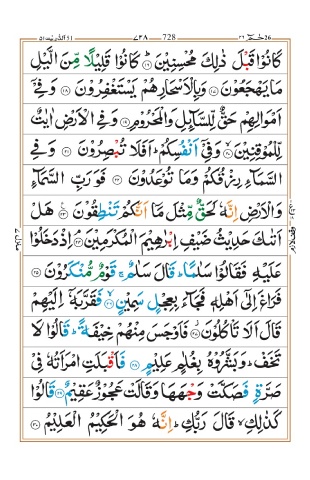 حٰمٓ ٢٦ 728 ٧٢٨ الذّٰريٰت ٥١
كَانُوْا قَبْلَ ذٰلِكَ مُحْسِنِيْنَ ؕ﴿۱۶﴾ كَانُوْا قَلِيْلًا مِّنَ الَّيْلِ
مَا يَهْجَعُوْنَ ﴿۱۷﴾ وَبِالْاَسْحَارِهُمْ يَسْتَغْفِرُوْنَ ﴿۱۸﴾ وَفِيْۤ
اَمْوَالِهِمْ حَقٌّ لِّلسَّآىِٕلِ وَالْمَحْرُوْمِ ﴿۱۹﴾ وَفِي الْاَرْضِ اٰيٰتٌ
لِّلْمُوْقِنِيْنَ ﴿۲۰﴾ وَفِيْۤ اَنْفُسِكُمْ ؕ اَفَلَا تُبْصِرُوْنَ ﴿۲۱﴾ وَفِي
السَّمَآءِ رِزْقُكُمْ وَمَا تُوْعَدُوْنَ ﴿۲۲﴾ فَوَرَبِّ السَّمَآءِ
وَالْاَرْضِ اِنَّهٗ لَحَقٌّ مِّثْلَ مَاۤ اَنَّكُمْ تَنْطِقُوْنَ ﴿۲۳﴾ هَلْ
اَتٰىكَ حَدِيْثُ ضَيْفِ اِبْرٰهِيْمَ الْمُكْرَمِيْنَ ﴿۲۴﴾ اِذْ دَخَلُوْا
عَلَيْهِ فَقَالُوْا سَلٰمًا ؕ قَالَ سَلٰمٌ ۚ قَوْمٌ مُّنْكَرُوْنَ ﴿۲۵﴾
فَرَاغَ اِلٰۤى اَهْلِهٖ فَجَآءَ بِعِجْلٍ سَمِيْنٍ ﴿۲۶﴾ فَقَرَّبَهٗۤ اِلَيْهِمْ
قَالَ اَلَا تَاْكُلُوْنَ ﴿۲۷﴾ فَاَوْجَسَ مِنْهُمْ خِيْفَةً ؕ قَالُوْا لَا
تَخَفْ ؕ وَبَشَّرُوْهُ بِغُلٰمٍ عَلِيْمٍ ﴿۲۸﴾ فَاَقْبَلَتِ امْرَاَتُهٗ فِيْ
صَرَّةٍ فَصَكَّتْ وَجْهَهَا وَقَالَتْ عَجُوْزٌ عَقِيْمٌ ﴿۲۹﴾ قَالُوْا
كَذٰلِكِ ۙ قَالَ رَبُّكِ ؕ اِنَّهٗ هُوَ الْحَكِيْمُ الْعَلِيْمُ ﴿۳۰﴾